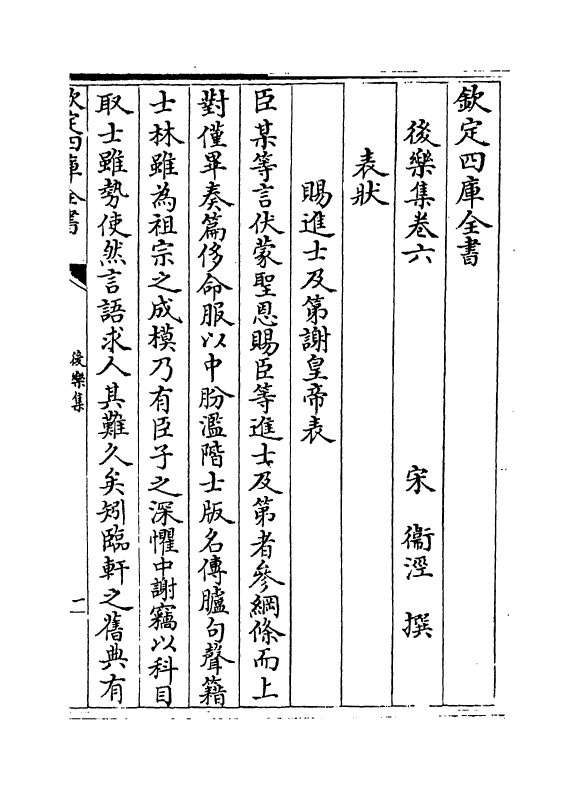 欽定四庫全書
後樂集卷六
宋 衞涇 撰
表狀
賜進士及第謝皇帝表
臣某等言伏蒙聖恩賜臣等進士及第者參綱條而上
對僅畢奏篇侈命服以中肦濫階士版名傳臚句聲籍
士林雖為祖宗之成模乃有臣子之深懼中謝竊以科目
取士雖勢使然言語求人其難久矣矧臨軒之舊典有
欽定四庫全書
後樂集
一